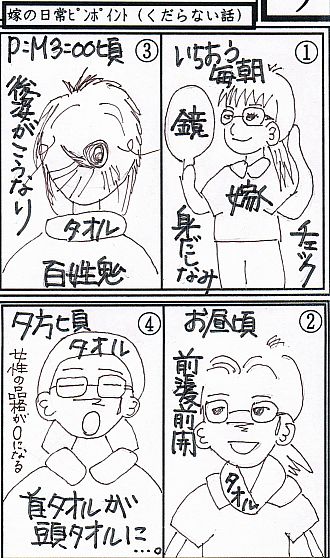 嫁の日常ピンポイント (くだらない話)
①
いちおう
毎朝
鏡
嫁
身だしなみ
チェック
②
お昼頃
前張前開
タオル
③
P:M3=00頃
後姿がこうなり
タオル
百姓魁
④
夕方頃
タオル
女性の品格が0になる
首タオルが
頭タオルに
…。